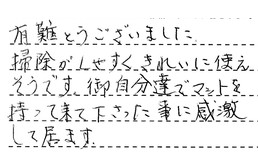 有難とうございました
掃除がしやすく、きれいに使え
そうです。御自分達でマットを
持って来て下さった事に感激
して居ます。